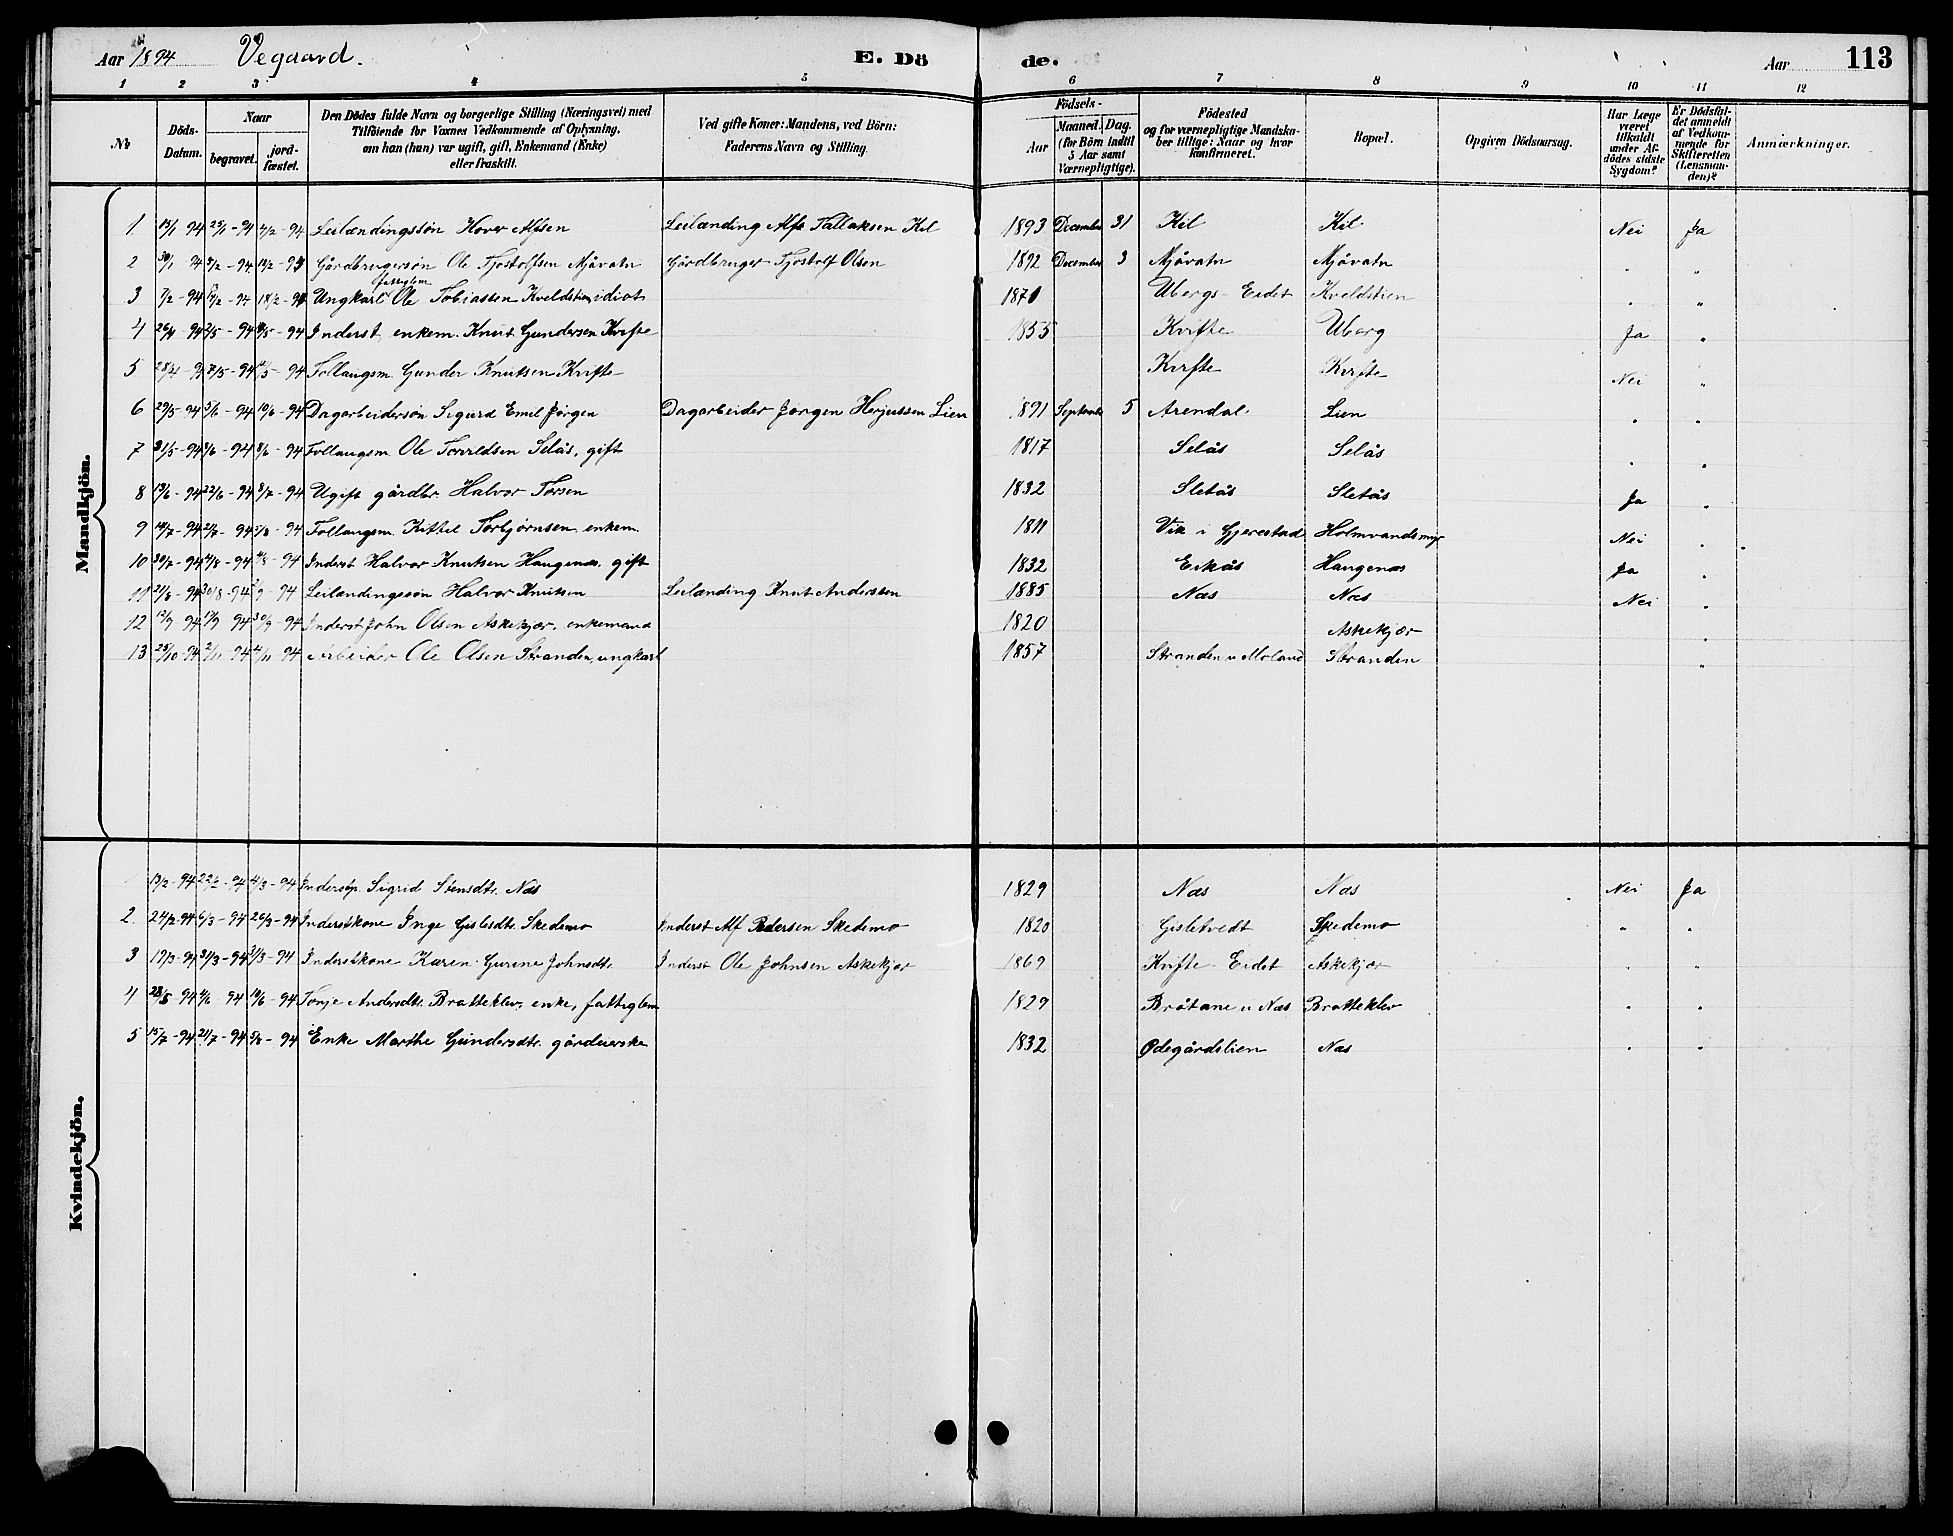 Aar 1894 Vegaard. E. Dö de. Aar 113
1 2 3 4 5 6 7 8 9 10 11 12
No Döds-Datum. Naar begravet. jordfæstet. Den Dödes fulde Navn og borgerlige Stilling (Næringsvei) med Tilföiende for Voxnes Vedkommende af Oplysning, om han (hun) var ugift, gift, Enkemand (Enke) eller fraskilt. Ved gifte Koner: Mandens, ved Börn: Faderens Navn og Stilling. Födsels- Aar Maaned. Dag. (for Börn indtil 5 Aar samt Værnepligtige). Födested og for værnepligtige Mandskaber tillige: Naar og hvor konfirmeret. Bopæl. Opgiven Dödsaarsag. Har Læge været tilkaldt under Afdödes sidste Sygdom? Er Dödsfaldet anmeldt af Vedkommende for Skifteretten (Lensmanden)? Anmærkninger.
Mandkjön.
1 15/1 94 25/1-94 4/2-94 Leilændingssön Hover Alfsen Leilænding Alf Tallaksen Kil 1893 December 31 Kil Kil Nei Ja
2 30/1 94 8/2-94 Gårdbrugersön Ole Tjostolfsen Mjåvatn Gårdbruger Tjostolf Olsen 1892 December 3 Mjåvatn Mjåvatn " "
3 7/2-94 18/2-94 Ungkarl fattiglem Ole Tobiassen Kveldstien idiot 1871 Ubergs-Eidet Kveldstien " "
4 26/4-94 2/5-94 Inderst, enkem. Knut Gundersen Kvifte 1855 Kvifte Uberg Ja "
5 28/4-94 7/5-94 Follaugsm. Gunder Knutsen Kvifte Kvifte Kvifte Nei "
6 29/5-94 5/6-94 10/6-94 Dagarbeidersön Sigurd Emil Jörgen Dagarbeider Jörgen Herjussen Lien 1891 September 5 Arendal Lien " "
7 31/5-94 8/6-94 Follaugsm. Ole Torvildsen Selås, gift 1817 Selås Selås " "
8 13/6-94 22/6-94 8/7-94 Ugift gårdbr. Halvor Torsen 1832 Sletås Sletås Ja "
9 18/7-94 2/7-94 5/8-94 Follaugsm. Kittil Torbjörnsen enkem. 1811 Vik i Gjerestad Holmvandsmyr Nei "
10 30/7-94 4/8-94 Inderst Halvor Knutsen Haugenæs. gift 1832 Eikås Haugenæs Ja "
11 21/8-94 30/8-94 2/9-94 Leilændingssön Halvor Knutsen Leilænding Knut Anderssen 1885 Næs Næs Nei "
12 12/9 94 17/9 94 30/9-94 Inderst John Olsen Askekjær, enkemand 1820 Askekjær "
13 25/10-94 2/11 94 4/11 94 Arbeider Ole Olsen Stranden, ungkarl 1857 Stranden u. Moland Stranden "
Kvindekjön.
13/2-94 22/2-94 4/3-94 Inderstp. Sigrid Stensdtr. Næs 1829 Næs Næs Nei Ja
2. 24/2-94 6/3-94 26/3-94 Inderstkone Inge Gislesdtr. Skedemo Inderst Alf Pedersen Skedemo 1820 Gisletvedt Skedemo " "
3 19/3-94 31/3-94 Inderstkone Karen Gurine Johnsdtr. Inderst Ole Johnsen Askekjær 1869 Kvifte-Eidet Askekjær " "
4 28/5-94 4/6-94 10/6-94 Tonje Andersdtr. Bratteklev, enke, fattiglem 1829 Bråtane u Næs Bratteklev " "
5 15/7-94 21/7-94 5/8-94 Enke Marthe Gundersdtr. gårdeierske 1832 Ødegårdslien Næs " "